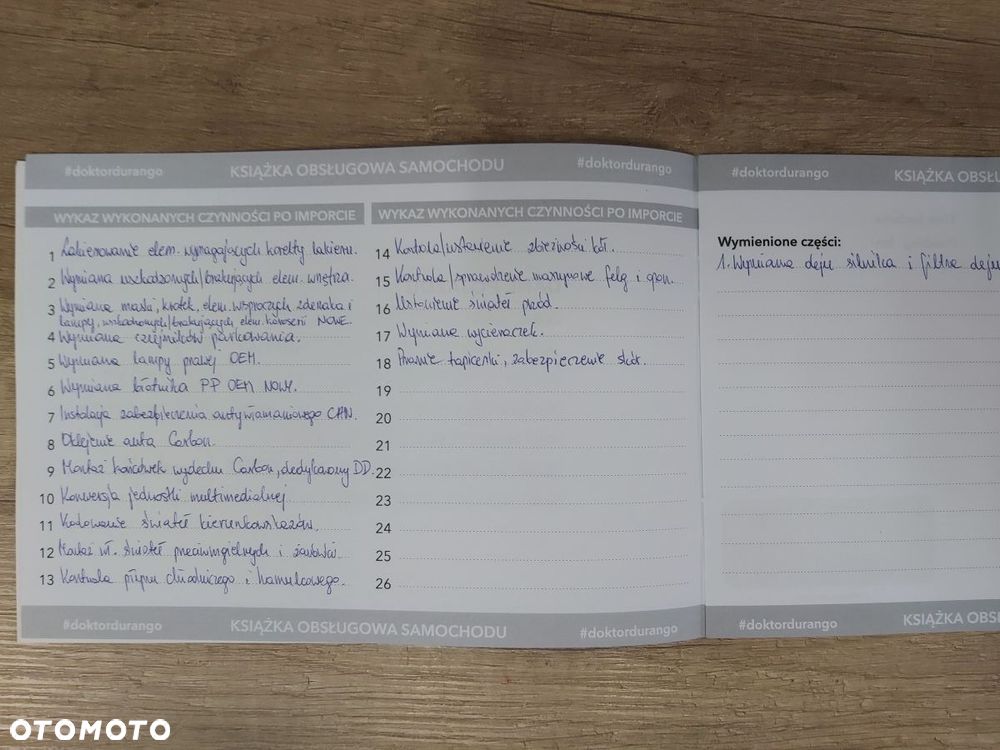 #doktordurango KSIĄŻKA OBSŁUGOWA SAMOCHODU #doktordurango
WYKAZ WYKONANYCH CZYNNOŚCI PO IMPORCIE
1 Lakierowanie elem. wymagających korekty lakieru.
2 Wymiana uszkodzonych/brakujących elem. wnętrza.
3 Wymiana maski, kratek, elem. wsporczych zderzaka i
lampy, uszkodzonych/brakujących elem. karoserii NOWE.
4 Wymiana czujników parkowania.
5 Wymiana lampy prawej OEM.
6 Wymiana błotnika PP OEM NOWY.
7 Instalacja zabezpieczenia antywłamaniowego CAN.
8 Oklejenie auta Carbon.
9 Montaż końcówek wydechu Carbon, dedykowany DD.
10 Konwersja jednostki multimedialnej
11 Kodowanie świateł kierunkowskazów.
12 Montaż wł. świateł przeciwmgielnych i żarówki.
13 Kontrola płynu chłodniczego i hamulcowego.
WYKAZ WYKONANYCH CZYNNOŚCI PO IMPORCIE
14 Kontrola/ustawienie zbieżności kół.
15 Kontrola/sprawdzenie maszynowe felg i opon.
16 Ustawienie świateł przód.
17 Wymiana wycieraczek.
18 Pranie tapicerki, zabezpieczenie skór.
19
20
21
22
23
24
25
26
#doktordurango KSIĄŻKA OBSŁUGOWA SAMOCHODU #doktordurango
#doktordurango KSIĄŻKA OBSŁU
Wymienione części:
1. Wymiana oleju silnika i filtra oleju
#doktordurango KSIĄŻKA OBSŁ
OTOMOTO